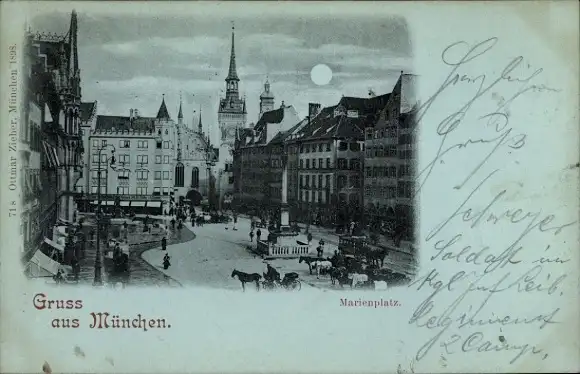 718 Ottmar Zieher, München 1898.
Gruss
aus München.
Marienplatz.
Herzlichen
Gruß
Schweyer
Soldat im
Kgl Inf. Leib.
Regiment
2 Comp.